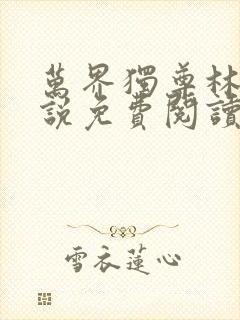 萬界獨尊林
說免費閱讀
雪衣蓮心